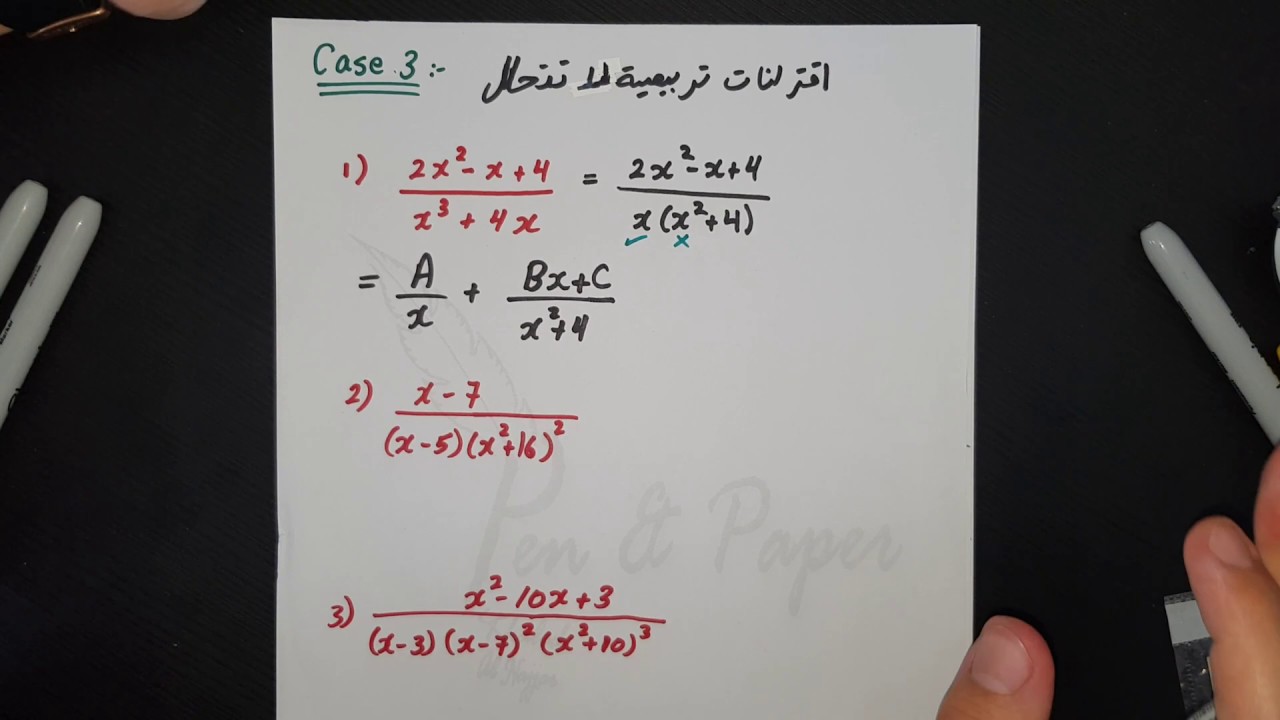 Case 3 :- اقترانات تربيعية لا تتحلل
1) 2x² - x + 4 / x³ + 4x = 2x² - x + 4 / x(x² + 4)
= A / x + Bx + C / x² + 4
2) x - 7 / (x - 5)(x² + 16)²
Pen & Paper
3) x² - 10x + 3 / (x - 3)(x - 7)²(x² + 10)³